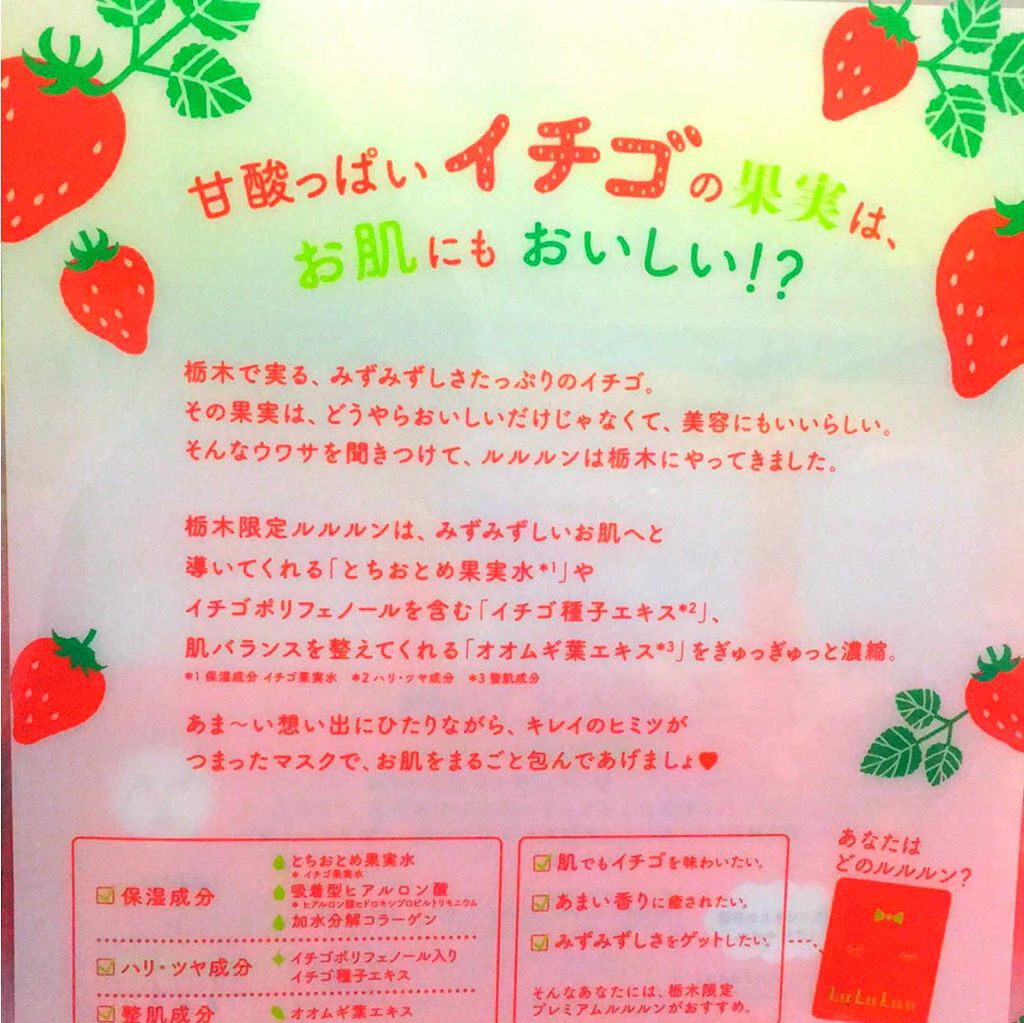 甘酸っぱいイチゴの果実は、
お肌にもおいしい!?
栃木で実る、みずみずしさたっぷりのイチゴ。
その果実は、どうやらおいしいだけじゃなくて、美容にもいいらしい。
そんなウワサを聞きつけて、ルルルンは栃木にやってきました。
栃木限定ルルルンは、みずみずしいお肌へと
導いてくれる「とちおとめ果実水*1」や
イチゴポリフェノールを含む「イチゴ種子エキス*2」、
肌バランスを整えてくれる「オオムギ葉エキス*3」をぎゅっぎゅっと濃縮。
*1 保湿成分 イチゴ果実水 *2 ハリ・ツヤ成分 *3 整肌成分
あま〜い想い出にひたりながら、キレイのヒミツが
つまったマスクで、お肌をまるごと包んであげましょ♥
保湿成分
とちおとめ果実水
* イチゴ果実水
吸着型ヒアルロン酸
* ヒアルロン酸ヒドロキシプロピルトリモニウム
加水分解コラーゲン
ハリ・ツヤ成分
イチゴポリフェノール入り
イチゴ種子エキス
整肌成分
オオムギ葉エキス
肌でもイチゴを味わいたい。
あまい香りに癒されたい。
みずみずしさをゲットしたい。
そんなあなたには、栃木限定
プレミアムルルルンがおすすめ。
あなたは
どのルルルン?
LuLuLun